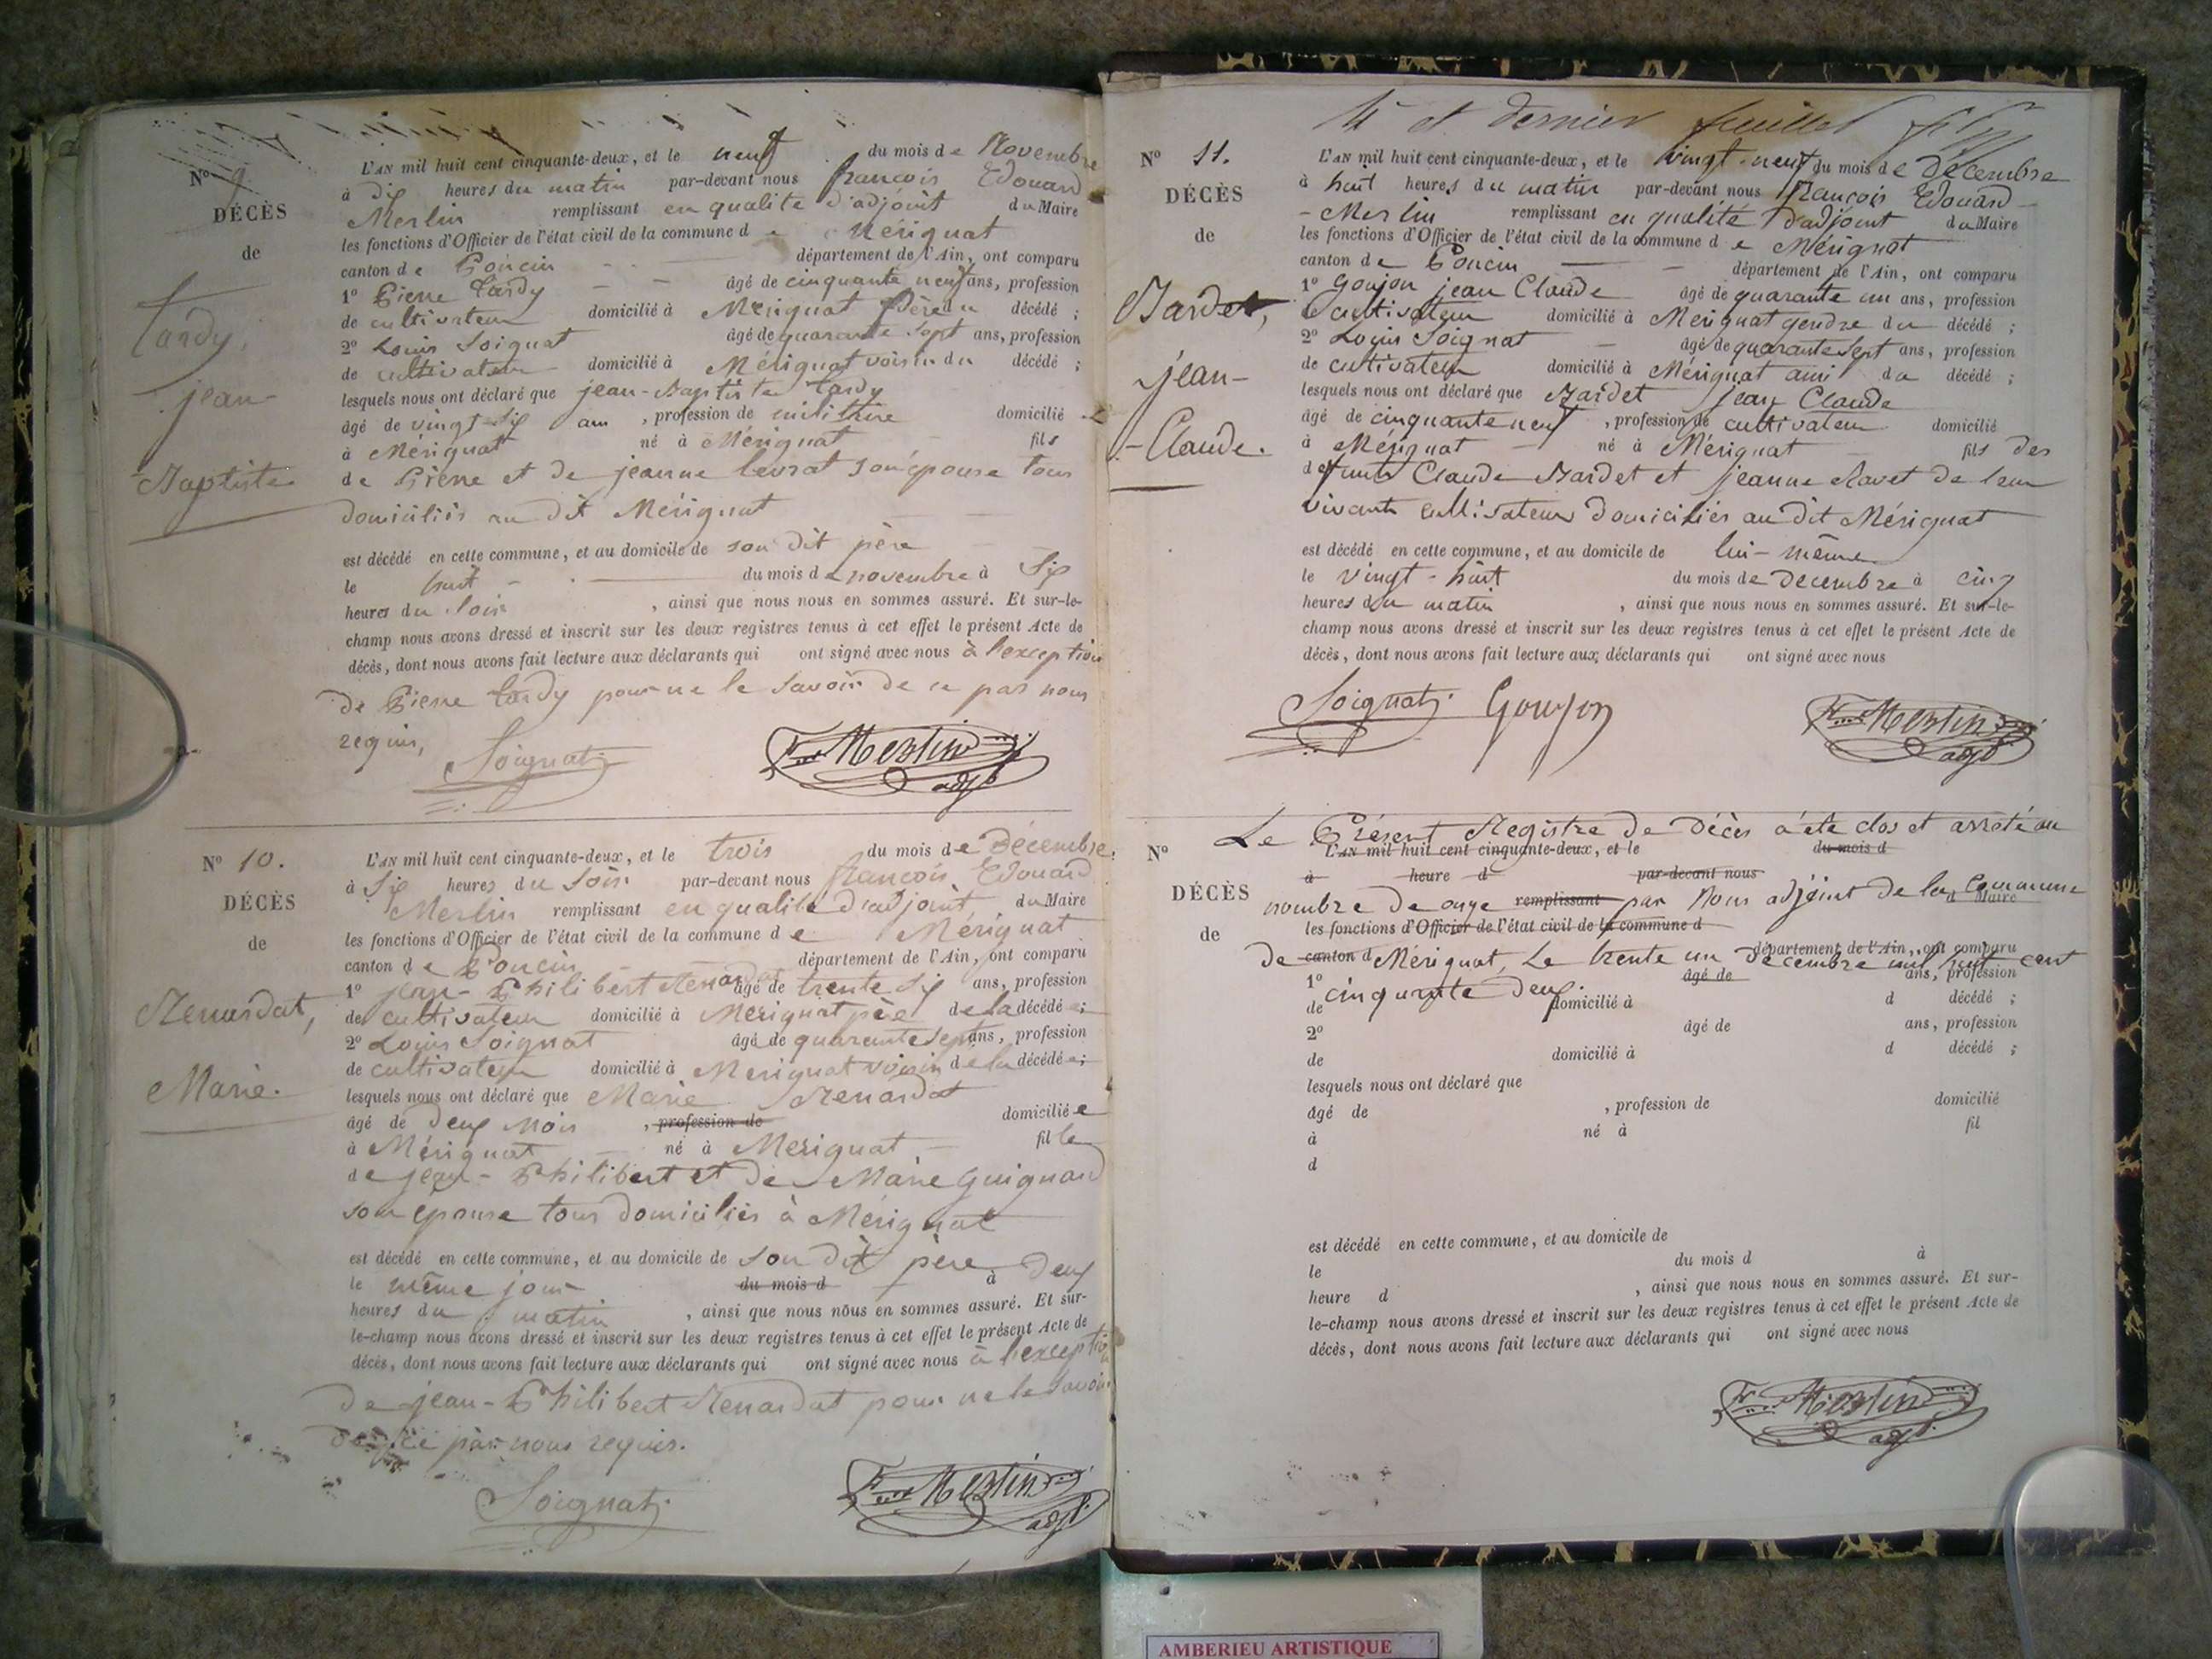 N° 9
DÉCÈS
de
Tardy,
jean-
Baptiste
L'AN mil huit cent cinquante-deux, et le neuf du mois de Novembre
à dix heures du matin par-devant nous françois Edouard
Merlin remplissant en qualité d'adjoint du Maire
les fonctions d'Officier de l'état civil de la commune de Mérignat
canton de Poncin département de l'Ain, ont comparu
1° Pierre Tardy âgé de cinquante neuf ans, profession
de cultivateur domicilié à Mérignat Père du décédé ;
2° Louis Soignat âgé de quarante sept ans, profession
de cultivateur domicilié à Mérignat voisin du décédé ;
lesquels nous ont déclaré que jean-Baptiste Tardy
âgé de vingt-six ans , profession de militaire domicilié
à Mérignat né à Mérignat fils
de Pierre et de jeanne Levrat son épouse tous
domiciliés au dit Mérignat
est décédé en cette commune, et au domicile de son dit père
le huit du mois de novembre à Six
heures du Soir , ainsi que nous nous en sommes assuré. Et sur-le-
champ nous avons dressé et inscrit sur les deux registres tenus à cet effet le présent Acte de
décès, dont nous avons fait lecture aux déclarants qui ont signé avec nous à l'exception
de Pierre Tardy pour ne le Savoir de ce par nous
requis,
Soignat Merlin
adjt
N° 10.
DÉCÈS
de
Renardat,
Marie.
L'AN mil huit cent cinquante-deux, et le trois du mois de Décembre
à Six heures du Soir par-devant nous françois Edouard
Merlin remplissant en qualité d'adjoint du Maire
les fonctions d'Officier de l'état civil de la commune de Mérignat
canton de Poncin département de l'Ain, ont comparu
1° jean-Philibert Renardat âgé de trente Six ans, profession
de cultivateur domicilié à Mérignat père de la décédée;
2° Louis Soignat âgé de quarante sept ans, profession
de cultivateur domicilié à Mérignat voisin de la décédée;
lesquels nous ont déclaré que Marie Renardat
âgé de deux mois , profession de domiciliée
à Mérignat né à Mérignat fille
de jean-Philibert et de Marie Guignard
son épouse tous domiciliés à Mérignat
est décédé en cette commune, et au domicile de son dit père
le même jour du mois d à deux
heures du matin , ainsi que nous nous en sommes assuré. Et sur-
le-champ nous avons dressé et inscrit sur les deux registres tenus à cet effet le présent Acte de
décès, dont nous avons fait lecture aux déclarants qui ont signé avec nous à l'exception
de jean-Philibert Renardat pour ne le savoir
de ce par nous requis.
Soignat Merlin
adjt
4 et dernier feuillet
N° 11.
DÉCÈS
de
Bardet,
jean-
-Claude.
L'AN mil huit cent cinquante-deux, et le vingt-neuf du mois de Décembre
à huit heures du matin par-devant nous françois Edouard
-Merlin remplissant en qualité d'adjoint du Maire
les fonctions d'Officier de l'état civil de la commune de Mérignat
canton de Poncin département de l'Ain, ont comparu
1° Goujon jean Claude âgé de quarante un ans, profession
de cultivateur domicilié à Mérignat gendre du décédé ;
2° Louis Soignat âgé de quarante sept ans, profession
de cultivateur domicilié à Mérignat ami du décédé ;
lesquels nous ont déclaré que Bardet jean Claude
âgé de cinquante neuf , profession de cultivateur domicilié
à Mérignat né à Mérignat fils des
défunts Claude Bardet et jeanne Ravet de leur
vivants cultivateurs domiciliés au dit Mérignat
est décédé en cette commune, et au domicile de lui-même
le vingt-huit du mois de Décembre à cinq
heures du matin , ainsi que nous nous en sommes assuré. Et sur-le-
champ nous avons dressé et inscrit sur les deux registres tenus à cet effet le présent Acte de
décès, dont nous avons fait lecture aux déclarants qui ont signé avec nous
Soignat Goujon Merlin
adjt
Le Présent Registre de Décès a été clos et arrêté au
N° L'AN mil huit cent cinquante-deux, et le du mois d
à heure d par-devant nous
DÉCÈS
de
nombre de onze remplissant par Nous adjoint de la Commune d Maire
les fonctions d'Officier de l'état civil de la commune d
de canton d Mérignat, Le trente un Décembre mil huit cent
département de l'Ain, ont comparu
1° âgé de ans, profession
cinquante deux.
de domicilié à d décédé ;
2° âgé de ans, profession
de domicilié à d décédé ;
lesquels nous ont déclaré que
âgé de , profession de domicilié
à né à fil
d
est décédé en cette commune, et au domicile de
le du mois d à
heure d , ainsi que nous nous en sommes assuré. Et sur-
le-champ nous avons dressé et inscrit sur les deux registres tenus à cet effet le présent Acte de
décès, dont nous avons fait lecture aux déclarants qui ont signé avec nous
Merlin
adjt
AMBERIEU ARTISTIQUE